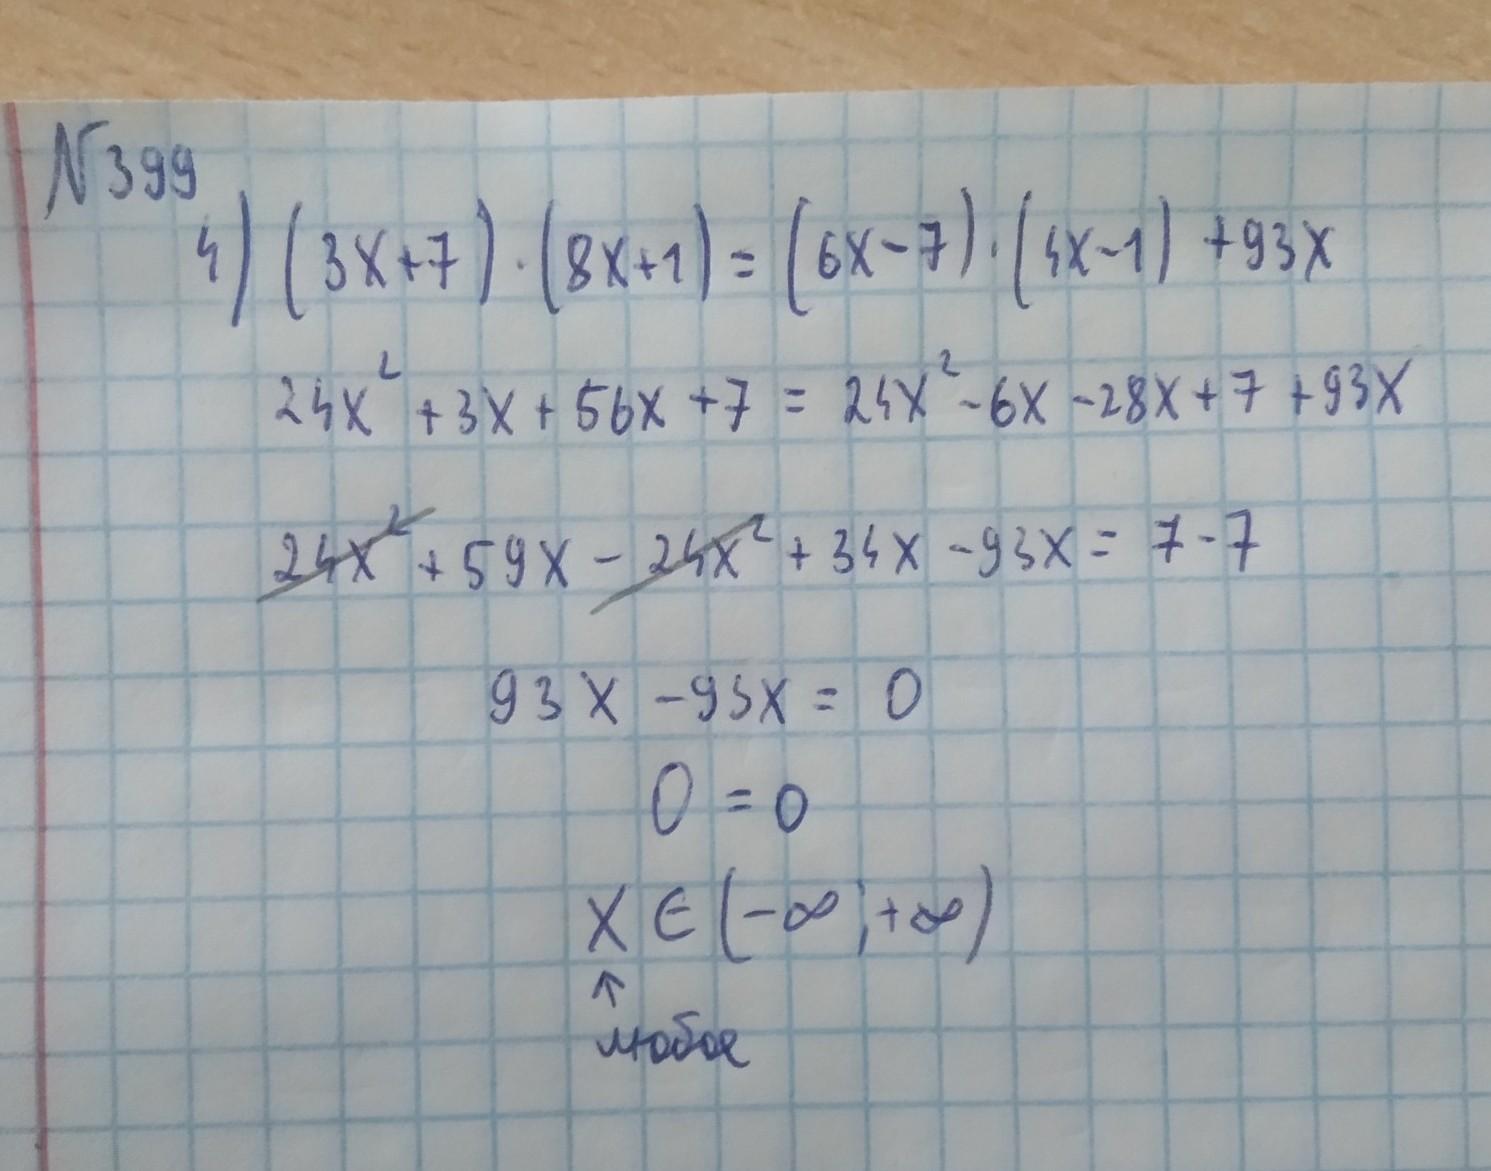 №399
4) (3x+7)·(8x+1)=(6x-7)·(4x-1)+93x
24x²+3x+56x+7=24x²-6x-28x+7+93x
24x²+59x-24x²+34x-93x=7-7
93x-93x=0
0=0
x∈(-∞;+∞)
↑
любое